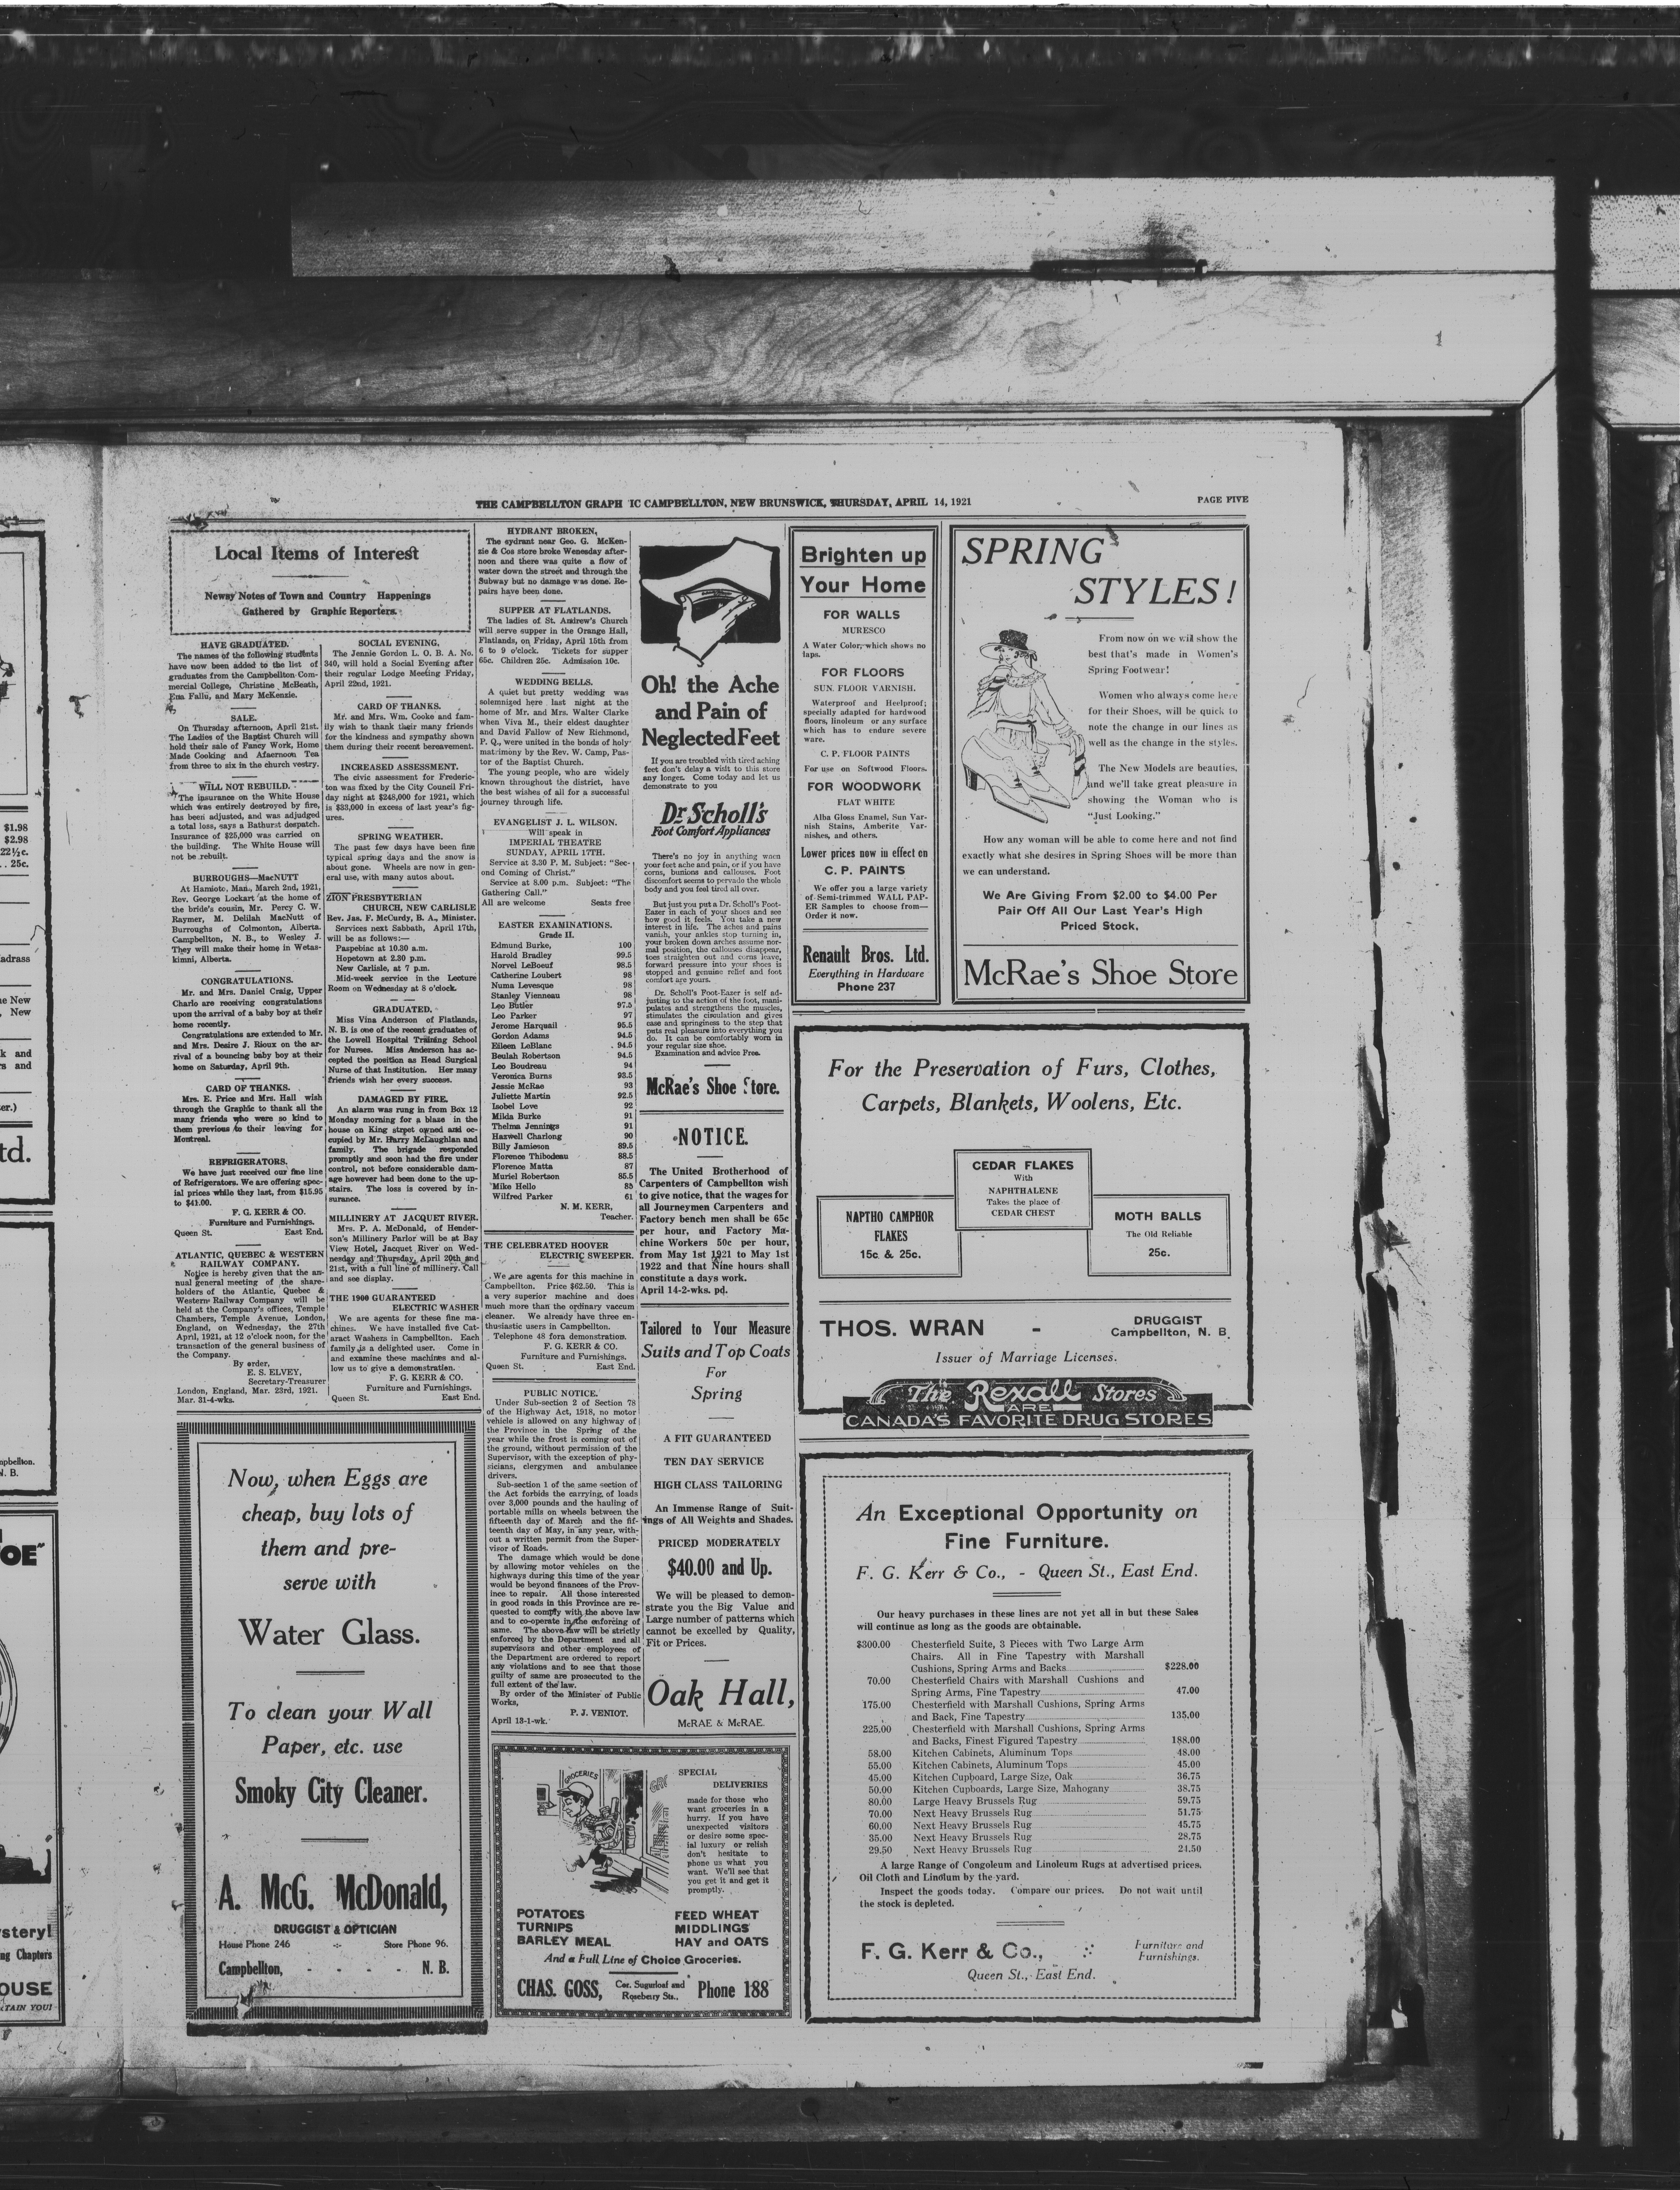 THE CAMPBELLTON GRAPH IC CAMPBELLTON, NEW BRUNSWICK, THURSDAY, APRIL 14, 1921
PAGE FIVE
Local Items of Interest
Newsy Notes of Town and Country Happenings
Gathered by Graphic Reporters.
HAVE GRADUATED.
The names of the following students
have now been added to the list of
graduates from the Campbellton Com-
mercial College, Christine McBeath,
Ena Fallu, and Mary McKenzie.
SALE.
On Thursday afternoon, April 21st.
The Ladies of the Baptist Church will
hold their sale of Fancy Work, Home
Made Cooking and Afaernoon Tea
from three to six in the church vestry.
WILL NOT REBUILD.
The insurance on the White House
which was entirely destroyed by fire,
has been adjusted, and was adjudged
a total loss, says a Bathurst despatch.
Insurance of $25,000 was carried on
the building. The White House will
not be rebuilt.
BURROUGHS—MacNUTT
At Hamiote, Man., March 2nd, 1921,
Rev. George Lockart at the home of
the bride's cousin, Mr. Percy C. W.
Raymer, M. Delilah MacNutt of
Burroughs of Colmonton, Alberta.
Campbellton, N. B., to Wesley J.
They will make their home in Wetas-
kimni, Alberta.
CONGRATULATIONS.
Mr. and Mrs. Daniel Craig, Upper
Charlo are receiving congratulations
upon the arrival of a baby boy at their
home recently.
Congratulations are extended to Mr.
and Mrs. Desire J. Rioux on the ar-
rival of a bouncing baby boy at their
home on Saturday, April 9th.
CARD OF THANKS.
Mrs. E. Price and Mrs. Hall wish
through the Graphic to thank all the
many friends who were so kind to
them previous to their leaving for
Montreal.
REFRIGERATORS.
We have just received our fine line
of Refrigerators. We are offering spec-
ial prices while they last, from $15.95
to $41.00.
F. G. KERR & CO.
Furniture and Furnishings.
Queen St. East End.
ATLANTIC, QUEBEC & WESTERN
RAILWAY COMPANY.
Notice is hereby given that the an-
nual general meeting of the share-
holders of the Atlantic, Quebec &
Western Railway Company will be
held at the Company's offices, Temple
Chambers, Temple Avenue, London,
England, on Wednesday, the 27th
April, 1921, at 12 o'clock noon, for the
transaction of the general business of
the Company.
By order,
E. S. ELVEY,
Secretary-Treasurer
London, England, Mar. 23rd, 1921.
Mar. 31-4-wks.
SOCIAL EVENING.
The Jennie Gordon L. O. B. A. No.
340, will hold a Social Evening after
their regular Lodge Meeting Friday,
April 22nd, 1921.
CARD OF THANKS.
Mr. and Mrs. Wm. Cooke and fam-
ily wish to thank their many friends
for the kindness and sympathy shown
them during their recent bereavement.
INCREASED ASSESSMENT.
The civic assessment for Frederic-
ton was fixed by the City Council Fri-
day night at $248,000 for 1921, which
is $33,000 in excess of last year's fig-
ures.
SPRING WEATHER.
The past few days have been fine
typical spring days and the snow is
about gone. Wheels are now in gen-
eral use, with many autos about.
ZION PRESBYTERIAN
CHURCH, NEW CARLISLE
Rev. Jas. F. McCurdy, B. A., Minister.
Services next Sabbath, April 17th,
will be as follows:—
Paspebiac at 10.30 a.m.
Hopetown at 2.30 p.m.
New Carlisle, at 7 p.m.
Mid-week service in the Lecture
Room on Wednesday at 8 o'clock.
GRADUATED.
Miss Vina Anderson of Flatlands,
N. B. is one of the recent graduates of
the Lowell Hospital Training School
for Nurses. Miss Anderson has ac-
cepted the position as Head Surgical
Nurse of that Institution. Her many
friends wish her every success.
DAMAGED BY FIRE.
An alarm was rung in from Box 12
Monday morning for a blaze in the
house on King street owned and oc-
cupied by Mr. Harry McLaughlan and
family. The brigade responded
promptly and soon had the fire under
control, not before considerable dam-
age however had been done to the up-
stairs. The loss is covered by in-
surance.
MILLINERY AT JACQUET RIVER.
Mrs. P. A. McDonald, of Hender-
son's Millinery Parlor will be at Bay
View Hotel, Jacquet River on Wed-
nesday and Thursday, April 20th and
21st, with a full line of millinery. Call
and see display.
THE 1900 GUARANTEED
ELECTRIC WASHER
We are agents for these fine ma-
chines. We have installed five Cat-
aract Washers in Campbellton. Each
family is a delighted user. Come in
and examine these machines and al-
low us to give a demonstration.
F. G. KERR & CO.
Furniture and Furnishings.
Queen St. East End.
HYDRANT BROKEN,
The sydrant near Geo. G. McKen-
zie & Cos store broke Wenesday after-
noon and there was quite a flow of
water down the street and through the
Subway but no damage was done. Re-
pairs have been done.
SUPPER AT FLATLANDS.
The ladies of St. Andrew's Church
will serve supper in the Orange Hall,
Flatlands, on Friday, April 15th from
6 to 9 o'clock. Tickets for supper
65c. Children 25c. Admission 10c.
WEDDING BELLS.
A quiet but pretty wedding was
solemnized here last night at the
home of Mr. and Mrs. Walter Clarke
when Viva M., their eldest daughter
and David Fallow of New Richmond,
P. Q., were united in the bonds of holy
matrimony by the Rev. W. Camp, Pas-
tor of the Baptist Church.
The young people, who are widely
known throughout the district, have
the best wishes of all for a successful
journey through life.
EVANGELIST J. L. WILSON.
Will speak in
IMPERIAL THEATRE
SUNDAY, APRIL 17TH.
Service at 3.30 P. M. Subject: "Sec-
ond Coming of Christ."
Service at 8.00 p.m. Subject: "The
Gathering Call."
All are welcome Seats free
EASTER EXAMINATIONS.
Grade II.
Edmund Burke, 100
Harold Bradley 99.5
Norvel LeBoeuf 98.5
Catherine Loubert 98
Numa Levesque 98
Stanley Vienneau 98
Leo Butler 97.5
Leo Parker 97
Jerome Harquail 95.5
Gordon Adams 94.5
Eileen LeBlanc 94.5
Beulah Robertson 94.5
Leo Boudreau 94
Veronica Burns 93.5
Jessie McRae 93
Juliette Martin 92.5
Isobel Love 92
Milda Burke 91
Thelma Jennings 91
Haxwell Charlong 90
Billy Jamieson 89.5
Florence Thibodeau 88.5
Florence Matta 87
Muriel Robertson 85.5
Mike Hello 85
Wilfred Parker 61
N. M. KERR,
Teacher.
THE CELEBRATED HOOVER
ELECTRIC SWEEPER.
We are agents for this machine in
Campbellton. Price $62.50. This is
a very superior machine and does
much more than the ordinary vaccum
cleaner. We already have three en-
thusiastic users in Campbellton.
Telephone 48 fora demonstration.
F. G. KERR & CO.
Furniture and Furnishings.
Queen St. East End.
PUBLIC NOTICE.
Under Sub-section 2 of Section 78
of the Highway Act, 1918, no motor
vehicle is allowed on any highway of
the Province in the Spring of the
year while the frost is coming out of
the ground, without permission of the
Supervisor, with the exception of phy-
sicians, clergymen and ambulance
drivers.
Sub-section 1 of the same section of
the Act forbids the carrying of loads
over 3,000 pounds and the hauling of
portable mills on wheels between the
fifteenth day of March and the fif-
teenth day of May, in any year, with-
out a written permit from the Super-
visor of Roads.
The damage which would be done
by allowing motor vehicles on the
highways during this time of the year
would be beyond finances of the Prov-
ince to repair. All those interested
in good roads in this Province are re-
quested to comply with the above law
and to co-operate in the enforcing of
same. The above law will be strictly
enforced by the Department and all
supervisors and other employees of
the Department are ordered to report
any violations and to see that those
guilty of same are prosecuted to the
full extent of the law.
By order of the Minister of Public
Works,
P. J. VENIOT.
April 13-1-wk.
Oh! the Ache
and Pain of
Neglected Feet
If you are troubled with tired aching
feet don't delay a visit to this store
any longer. Come today and let us
demonstrate to you
Dr Scholl's
Foot Comfort Appliances
There's no joy in anything when
your feet ache and pain, or if you have
corns, bunions and callouses. Foot
discomfort seems to pervade the whole
body and you feel tired all over.
But just you put a Dr. Scholl's Foot-
Eazer in each of your shoes and see
how good it feels. You take a new
interest in life. The aches and pains
vanish, your ankles stop turning in,
your broken down arches assume nor-
mal position, the callouses disappear,
toes straighten out and corns leave,
forward pressure into your shoes is
stopped and genuine relief and foot
comfort are yours.
Dr. Scholl's Foot-Eazer is self ad-
justing to the action of the foot, mani-
pulates and strengthens the muscles,
stimulates the circulation and gives
ease and springiness to the step that
puts real pleasure into everything you
do. It can be comfortably worn in
your regular size shoe.
Examination and advice Free.
McRae's Shoe Store.
NOTICE.
The United Brotherhood of
Carpenters of Campbellton wish
to give notice, that the wages for
all Journeymen Carpenters and
Factory bench men shall be 65c
per hour, and Factory Ma-
chine Workers 50c per hour,
from May 1st 1921 to May 1st
1922 and that Nine hours shall
constitute a days work.
April 14-2-wks. pd.
Tailored to Your Measure
Suits and Top Coats
For
Spring
A FIT GUARANTEED
TEN DAY SERVICE
HIGH CLASS TAILORING
An Immense Range of Suit-
ings of All Weights and Shades.
PRICED MODERATELY
$40.00 and Up.
We will be pleased to demon-
strate you the Big Value and
Large number of patterns which
cannot be excelled by Quality,
Fit or Prices.
Oak Hall,
McRAE & McRAE.
Brighten up
Your Home
FOR WALLS
MURESCO
A Water Color, which shows no
laps.
FOR FLOORS
SUN. FLOOR VARNISH.
Waterproof and Heelproof;
specially adapted for hardwood
floors, linoleum or any surface
which has to endure severe
ware.
C. P. FLOOR PAINTS
For use on Softwood Floors.
FOR WOODWORK
FLAT WHITE
Alba Gloss Enamel, Sun Var-
nish Stains, Amberite Var-
nishes, and others.
Lower prices now in effect on
C. P. PAINTS
We offer you a large variety
of Semi-trimmed WALL PAP-
ER Samples to choose from—
Order it now.
Renault Bros. Ltd.
Everything in Hardware
Phone 237
SPRING
STYLES!
From now on we will show the
best that's made in Women's
Spring Footwear!
Women who always come here
for their Shoes, will be quick to
note the change in our lines as
well as the change in the styles.
The New Models are beauties,
and we'll take great pleasure in
showing the Woman who is
"Just Looking."
How any woman will be able to come here and not find
exactly what she desires in Spring Shoes will be more than
we can understand.
We Are Giving From $2.00 to $4.00 Per
Pair Off All Our Last Year's High
Priced Stock.
McRae's Shoe Store
For the Preservation of Furs, Clothes,
Carpets, Blankets, Woolens, Etc.
CEDAR FLAKES
With
NAPHTHALENE
Takes the place of
CEDAR CHEST
NAPTHO CAMPHOR
FLAKES
15c & 25c.
MOTH BALLS
The Old Reliable
25c.
THOS. WRAN - DRUGGIST
Campbellton, N. B.
Issuer of Marriage Licenses.
The Rexall Stores
ARE
CANADA'S FAVORITE DRUG STORES
Now, when Eggs are
cheap, buy lots of
them and pre-
serve with
Water Glass.
To clean your Wall
Paper, etc. use
Smoky City Cleaner.
A. McG. McDonald,
DRUGGIST & OPTICIAN
House Phone 246 -:- Store Phone 96.
Campbellton, - - - - N. B.
GROCERIES
SPECIAL
DELIVERIES
made for those who
want groceries in a
hurry. If you have
unexpected visitors
or desire some spec-
ial luxury or relish
don't hesitate to
phone us what you
want. We'll see that
you get it and get it
promptly.
POTATOES FEED WHEAT
TURNIPS MIDDLINGS
BARLEY MEAL HAY and OATS
And a Full Line of Choice Groceries.
CHAS. GOSS, Cor. Sugarloaf and
Roseberry Sts., Phone 188
An Exceptional Opportunity on
Fine Furniture.
F. G. Kerr & Co., - Queen St., East End.
Our heavy purchases in these lines are not yet all in but these Sales
will continue as long as the goods are obtainable.
$300.00 Chesterfield Suite, 3 Pieces with Two Large Arm
Chairs. All in Fine Tapestry with Marshall
Cushions, Spring Arms and Backs $228.00
70.00 Chesterfield Chairs with Marshall Cushions and
Spring Arms, Fine Tapestry 47.00
175.00 Chesterfield with Marshall Cushions, Spring Arms
and Back, Fine Tapestry 135.00
225.00 Chesterfield with Marshall Cushions, Spring Arms
and Backs, Finest Figured Tapestry 188.00
58.00 Kitchen Cabinets, Aluminum Tops 48.00
55.00 Kitchen Cabinets, Aluminum Tops 45.00
45.00 Kitchen Cupboard, Large Size, Oak 36.75
50.00 Kitchen Cupboards, Large Size, Mahogany 38.75
80.00 Large Heavy Brussels Rug 59.75
70.00 Next Heavy Brussels Rug 51.75
60.00 Next Heavy Brussels Rug 45.75
35.00 Next Heavy Brussels Rug 28.75
29.50 Next Heavy Brussels Rug 21.50
A large Range of Congoleum and Linoleum Rugs at advertised prices.
Oil Cloth and Linolum by the yard.
Inspect the goods today. Compare our prices. Do not wait until
the stock is depleted.
F. G. Kerr & Co., Furniture and
Furnishings.
Queen St., East End.
$1.98
$2.98
22½c.
25c.